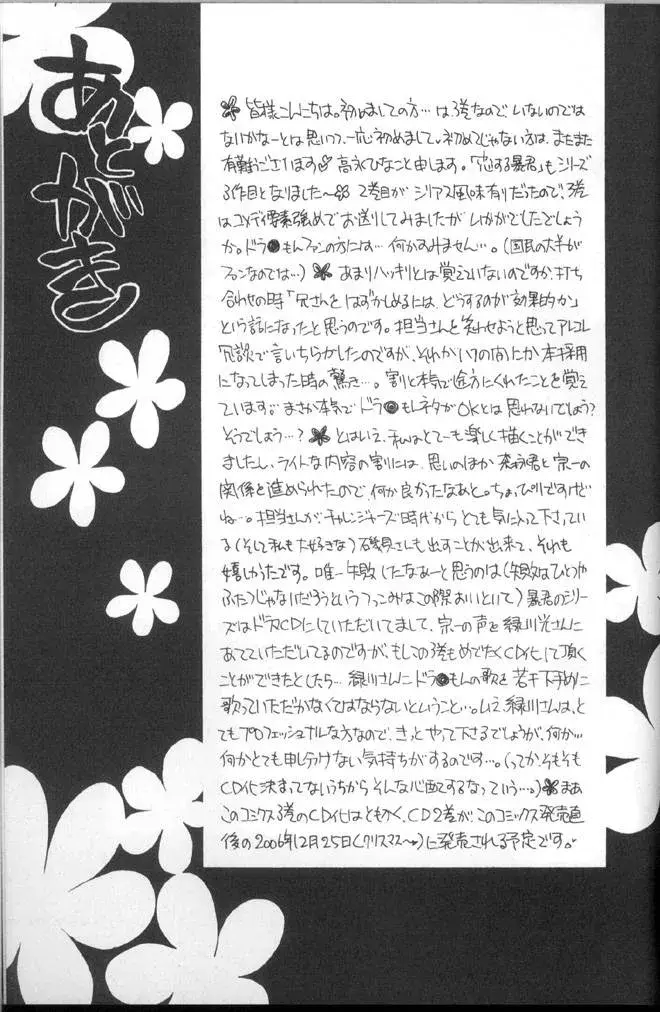 あとがき
皆様こんにちは。初めましての方…は3巻なのでいないのでは
ないかなーとは思いつつ、一応初めまして。初めてじゃない方は、またまた
有難うございます 高永ひなこと申します。「恋する暴君」もシリーズ
3作目となりました〜 2巻目がシリアス風味有りだったので、3巻
はコメディ要素強めでお送りしてみましたがいかがでしたでしょう
か。ドラ●もんファンの方には…何かすみません…。(国民の大半が
ファンなのでは…) あまりハッキリとは覚えていないのですが、打ち
合わせの時「兄さんをはずかしめるには、どうするのが効果的か」
という話になったと思うのです。担当さんを笑わせようと思ってアレコレ
冗談で言いちらかしたのですが、それがいつの間にか本採用
になってしまった時の驚き…。割と本気で途方にくれたことを覚え
ています。まさか本気でドラ●もんネタがOKとは思わないでしょう?
そうでしょう…? とはいえ、私はとても楽しく描くことができ
ましたし、ライトな内容の割りには、思いのほか森永君と宗一の
関係を進められたので、何か良かったなあと。ちょっぴりですけど
ね…。担当さんが、チャレンジャーズ時代からとても気に入って下さってい
る(そして私も大好きな)磯貝さんも出すことが出来て、それも
嬉しかったです。唯一失敗したなぁーと思うのは(失敗はひとつや
ふたつじゃないだろうというつっこみはこの際おいといて)暴君のシリー
ズはドラマCDにしていただいてまして、宗一の声を緑川光さんに
あてていただいてるのですが、もしこの3巻もめでたくCD化して頂く
ことができたとしたら…緑川さんにドラ●もんの歌を若干下手めに
歌っていただかなくてはならないということ…。いえ、緑川さんは、と
てもプロフェッショナルな方なので、きっとやって下さるでしょうが、何か…
何かとても申し分けない気持ちがするのです…。(ってか、そもそも
CD化決まってないうちからそんな心配てするなっていう…。) まあ
このコミックス3巻のCD化はともかく、CD2巻が、このコミックス発売直
後の2006年12月25日(クリスマス〜♥)に発売される予定です。